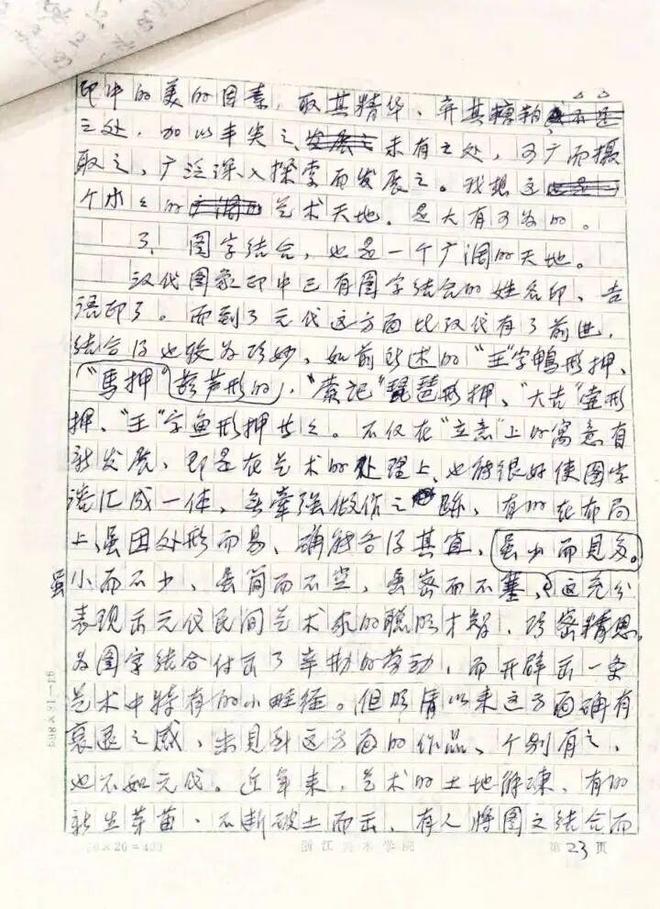 印中的美的因素，取其精华、弃其糟粕
之处，加以丰实之、发展之未有之处，可广而摄
取之，广泛深入探索而发展之。我想这
个小小的艺术天地，是大有可为的。
3、图字结合，也是一个广阔的天地。
汉代图象印中已有图字结合的姓名印、吉
语印了。而到了元代这方面比汉代有了前进，
结合得也较为巧妙，如前所述的“王”字鸭形押、
“馬押”葫芦形的，“蒙记”琵琶形押、“大吉”壶形
押、“王”字鱼形押等等。不仅在“立意”上的寓意有
新发展，即是在艺术的处理上，也能很好使图字
谐汇成一体，无牵强做作之跡，有的在布局
上，虽因处形而易，确能各得其宜，虽少而见多。
虽小而不少，虽简而不空，虽密而不塞，这充分
表现出元代民间艺术家的聪明才智，巧密精思。
为图字结合付出了辛勤的劳动，而开辟出一条
艺术中特有的小畦径。但明清以来这方面确有
衰退之感，未见到这方面的作品、个别有之，
也不如元代。近年来，艺术的土地解凍，有的
新生芽苗，不断破土而出，有人将图文结合而
20×20=400
浙江美术学院
第23页